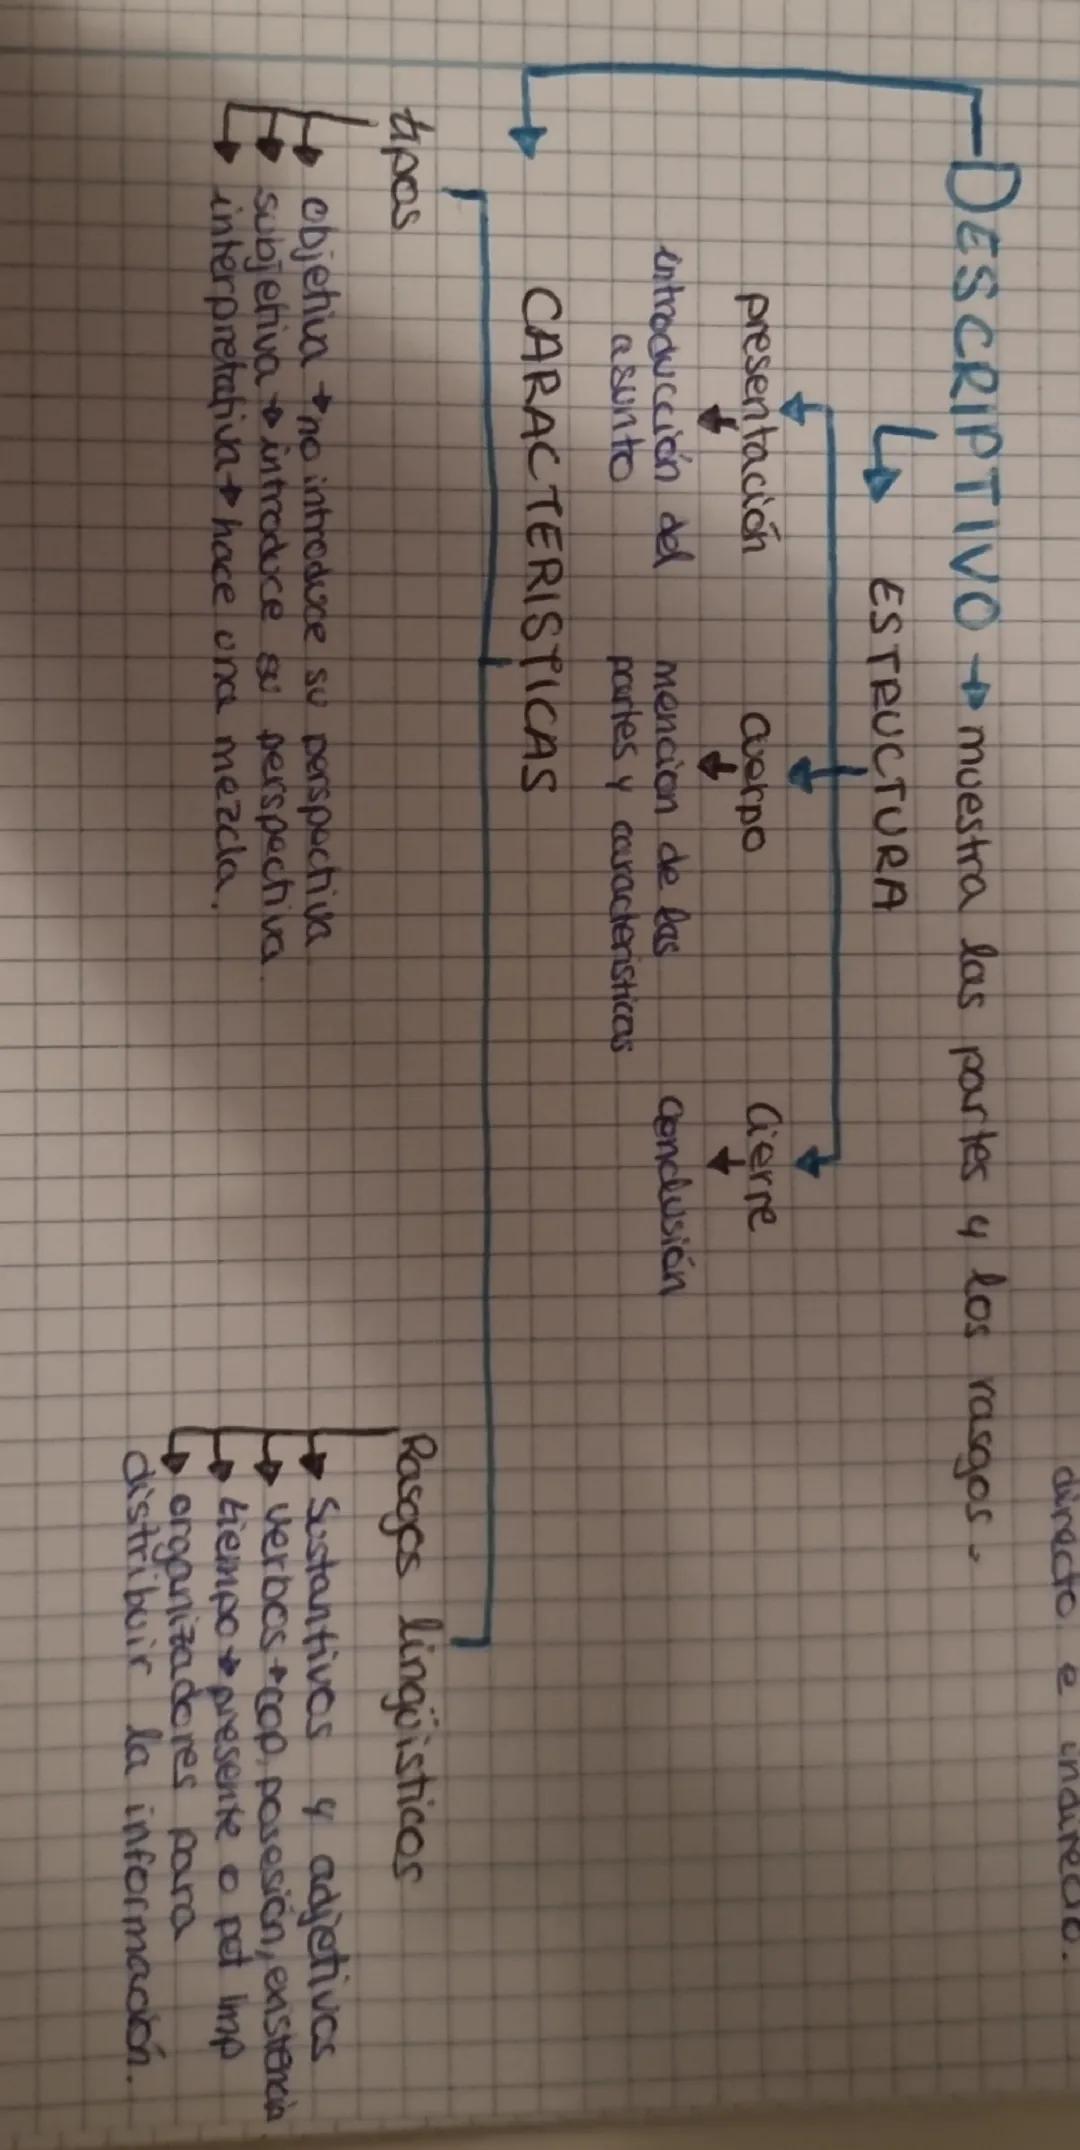 directo e indirecto.
DESCRIPTIVO → muestra las partes y los rasgos.
ESTRUCTURA
presentación cuerpo cierre
introducción del mencion de las conclusión
asunto partes y caracteristicas
CARACTERISTICAS
tipos Rasgos lingüisticos
objetiva → no introduce su perspectiva
subjetiva → introduce su perspectiva.
interpretativa → hace una mezcla.
Sustantivos y adjetivos
verbos → cop, posesión, existencia
tiempo → presente o pet imp
organizadores para
distribuir la información.